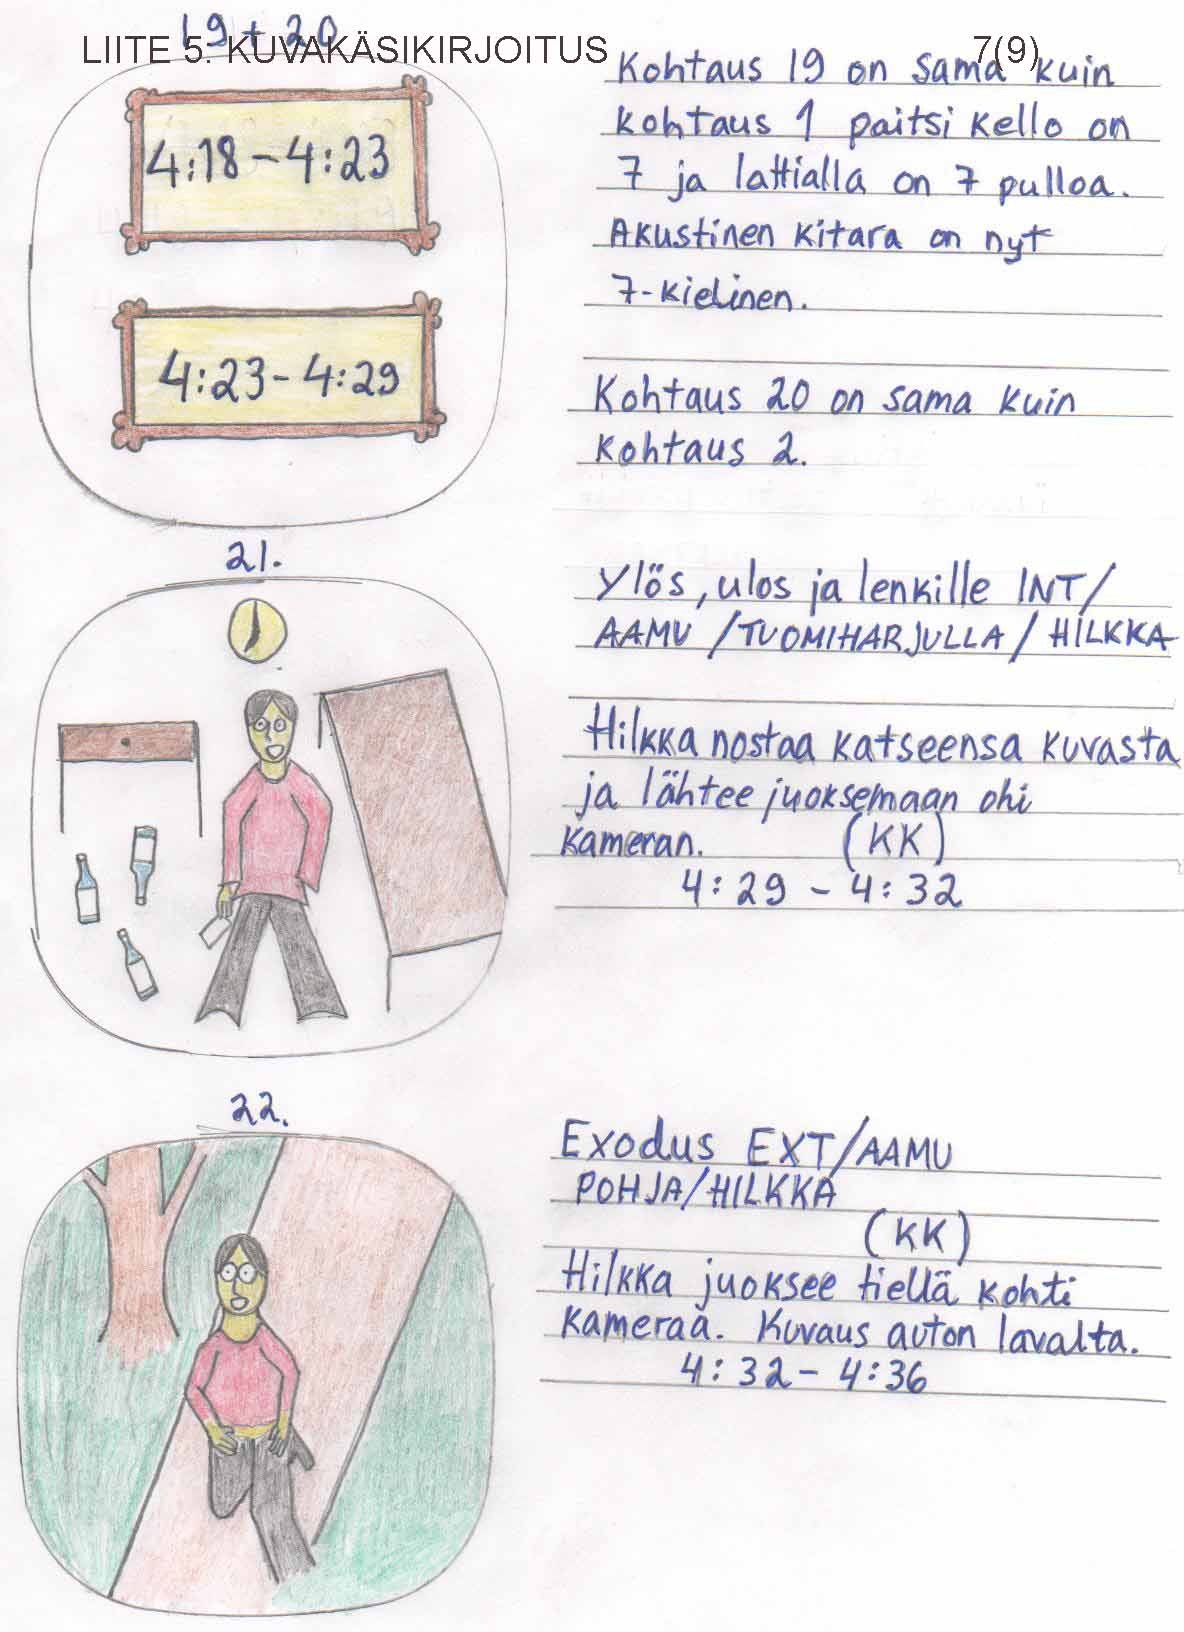 LIITE 5. KUVAKÄSIKIRJOITUS 7(9)
19 + 20
4:18 – 4:23
4:23 – 4:29
Kohtaus 19 on sama kuin
kohtaus 1 paitsi kello on
7 ja lattialla on 7 pulloa.
Akustinen kitara on nyt
7-kielinen.
Kohtaus 20 on sama kuin
kohtaus 2.
21.
Ylös, ulos ja lenkille INT/
AAMU /TUOMIHARJULLA/HILKKA
Hilkka nostaa katseensa kuvasta
ja lähtee juoksemaan ohi
kameran. (KK)
4:29 – 4:32
22.
Exodus EXT/AAMU
POHJA/HILKKA
(KK)
Hilkka juoksee tiellä kohti
kameraa. Kuvaus auton lavalta.
4:32 – 4:36